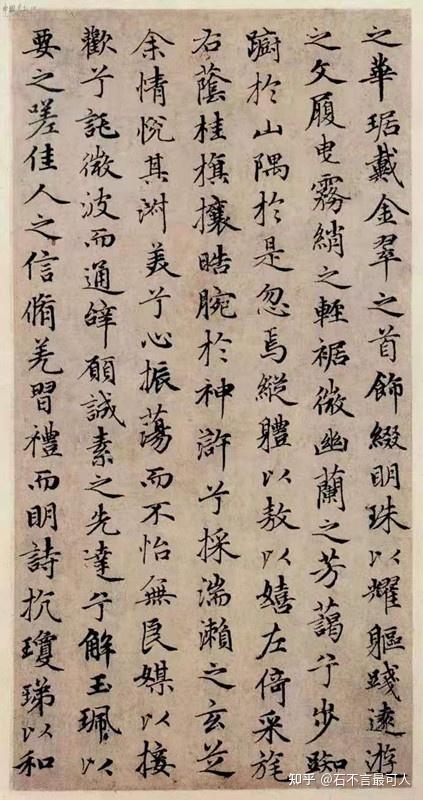 之華琚戴金翠之首飾綴明珠以耀軀踐遠游
之文履曳霧綃之輕裾微幽蘭之芳藹兮步踟
躕於山隅於是忽焉縱體以敖以嬉左倚采旄
右蔭桂旗攘皓腕於神滸兮採湍瀨之玄芝
余情悅其淑美兮心振蕩而不怡無良媒以接
歡兮託微波而通辭願誠素之先達兮解玉珮以
要之嗟佳人之信脩羌習禮而明詩抗瓊珶以和
知乎 @石不言最可人